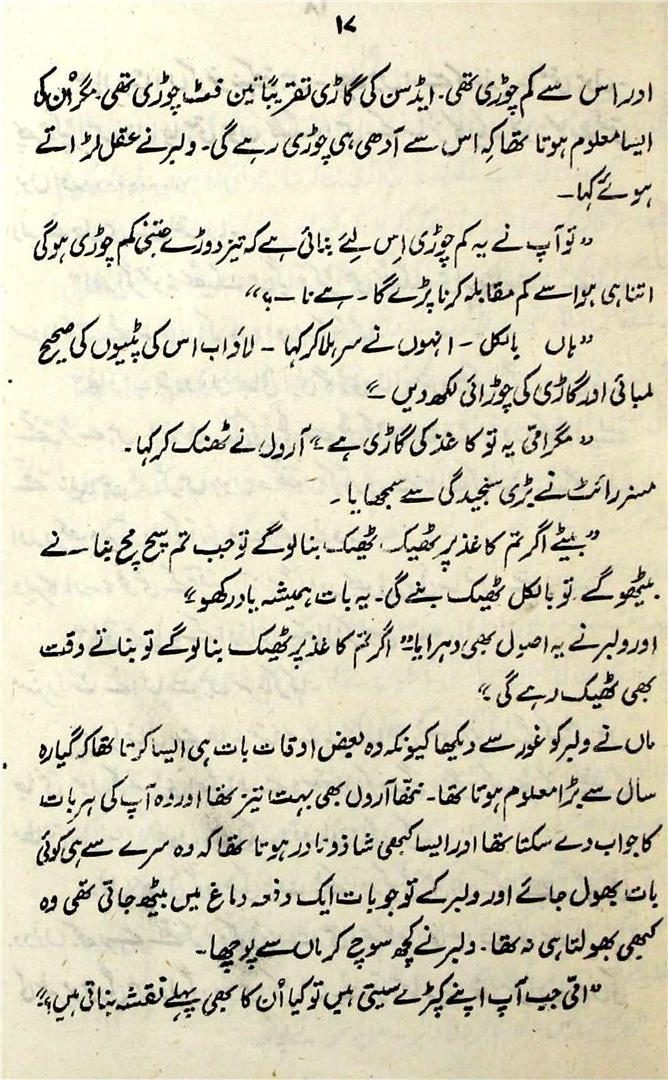 ۱۷
اور اس سے کم چوڑی تھی۔ ایڈسن کی گاڑی تقریباً تین فٹ چوڑی تھی۔ مگر اُن کی
ایسا معلوم ہوتا تھا کہ اس سے آدھی ہی چوڑی رہے گی۔ ولبر نے عقل لڑاتے
ہوئے کہا۔
”تو آپ نے یہ کم چوڑی اِس لئے بنائی ہے کہ تیز دوڑے جتنی کم چوڑی ہوگی
اتنا ہی ہوا سے کم مقابلہ کرنا پڑے گا۔ ہے نا۔؟“
”ہاں بالکل۔ انہوں نے سر ہلا کر کہا۔ لاؤ اب اس کی پٹیوں کی صحیح
لمبائی اور گاڑی کی چوڑائی لکھ دیں۔“
”مگر امّی یہ تو کاغذ کی گاڑی ہے“ آرول نے ٹھنک کر کہا۔
مسز رائٹ نے بڑی سنجیدگی سے سمجھایا۔
”بیٹے اگر تم کاغذ پر ٹھیک ٹھیک بنا لوگے تو جب تم سچ مچ بنانے
بیٹھوگے تو بالکل ٹھیک بنے گی۔ یہ بات ہمیشہ یاد رکھو“
اور ولبر نے یہ اصول بھی دہرایا ”اگر تم کاغذ پر ٹھیک بنا لوگے تو بناتے وقت
بھی ٹھیک رہے گی۔“
ماں نے ولبر کو غور سے دیکھا کیونکہ وہ بعض اوقات بات ہی ایسا کرتا تھا کہ گیارہ
سال سے بڑا معلوم ہوتا تھا۔ ننھا آرول بھی بہت تیز تھا اور وہ آپ کی ہر بات
کا جواب دے سکتا تھا اور ایسا کبھی شاذ و نادر ہوتا تھا کہ وہ سرے سے ہی کوئی
بات بھول جائے اور ولبر کے تو جو بات ایک دفعہ دماغ میں بیٹھ جاتی تھی وہ
کبھی بھولتا ہی نہ تھا۔ ولبر نے کچھ سوچ کر ماں سے پوچھا۔
”امّی جب آپ اپنے کپڑے سیتی ہیں تو کیا اُن کا بھی پہلے نقشہ بناتی ہیں؟“